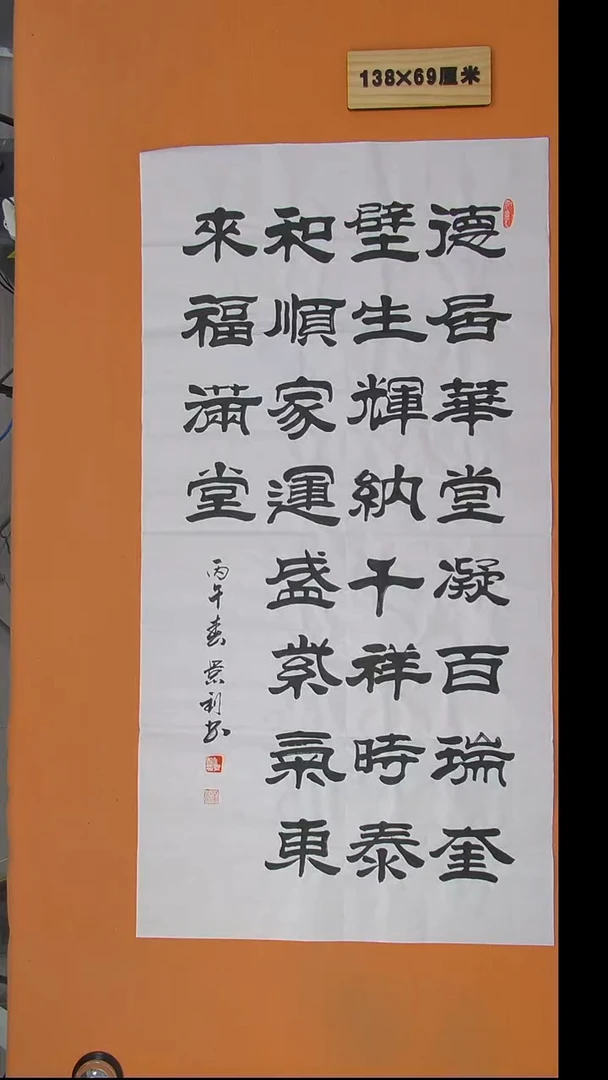 138×69厘米
德居華堂凝百瑞奎
壁生輝納千祥時泰
和順家運盛紫氣東
來福滿堂
丙午春景利书